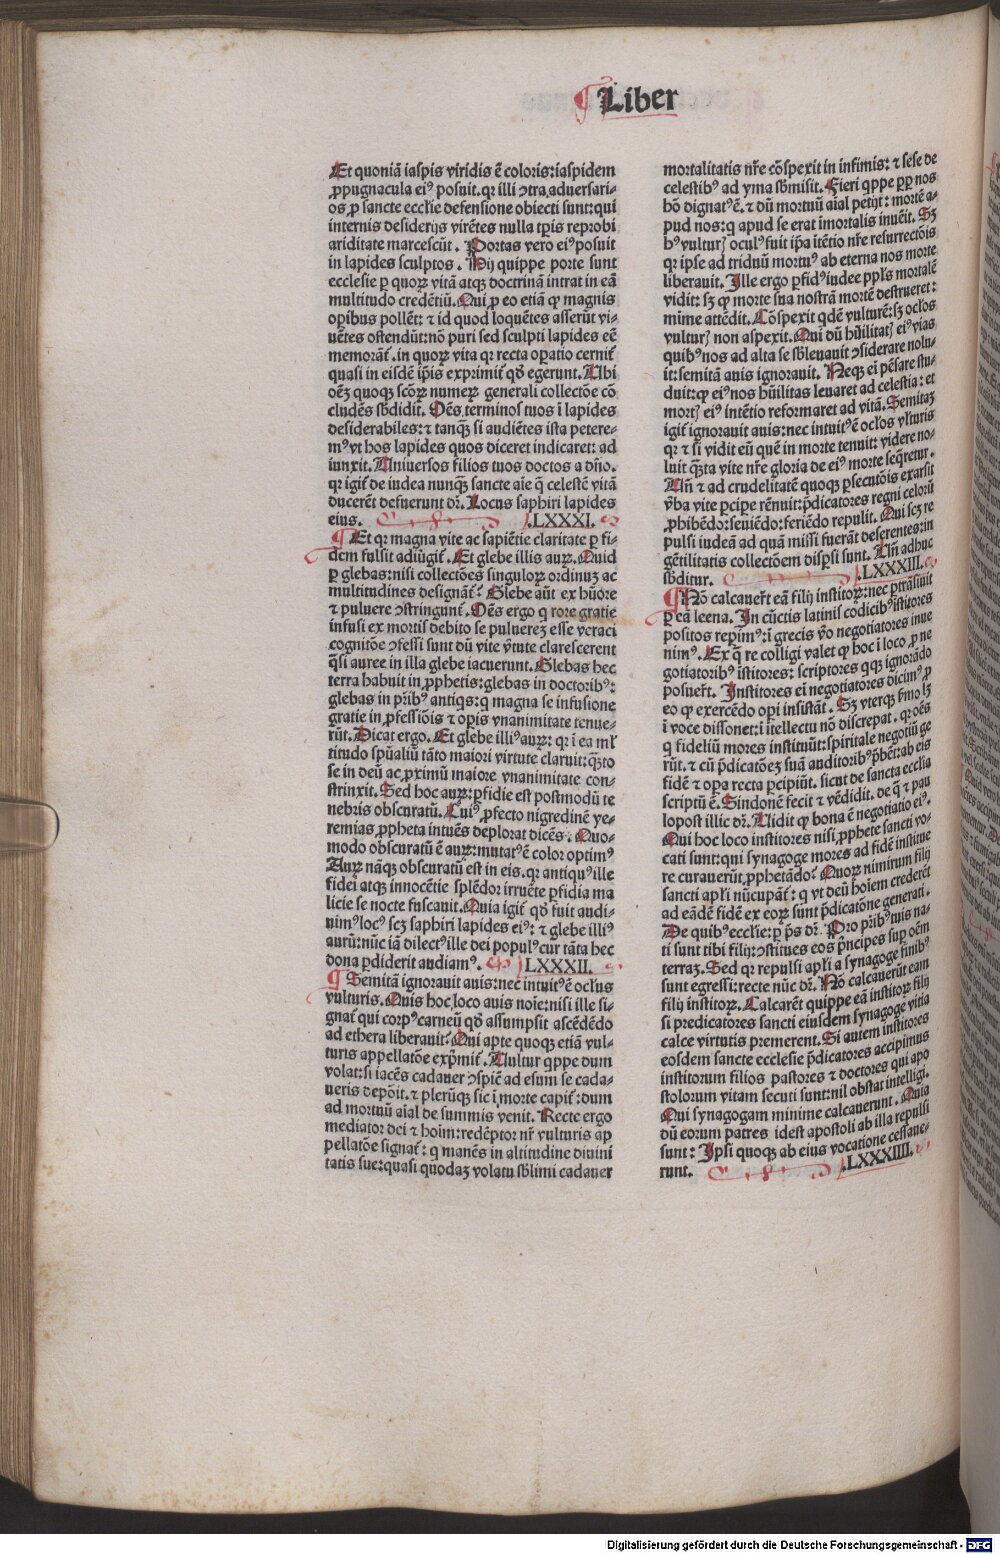 Liber
Et quoniā iaspis viridis ē coloris:iaspidem
ꝓpugnacula eiꝰ posuit.qꝛ illi ↄtra aduersari-
os ꝓ sancte eccl'ie defensione obiecti sunt:qui
internis desiderijs virētes nulla tꝑis reprobi
ariditate marcescūt. Portas vero eiꝰ posuit
in lapides sculptos. Hij quippe porte sunt
ecclesie ꝑ quoꝝ vitā atqꝫ doctrinā intrat in eā
multitudo credētiū.Qui ꝓ eo etiā ꝙ magnis
oꝑibus pollēt: ⁊ id quod loquētes asserūt vi-
uētes ostendūt:nō puri sed sculpti lapides eē
memorāt̉.in quoꝝ vita qꝛ recta oꝑatio cernit̉
quasi in eisdē ip̄is exprimit̉ qđ egerunt.Ubi
oēꝫ quoqꝫ scōꝝ numeꝝ generali collectōe cō
cludēs sb̄didit. Oēs terminos tuos ī lapides
desiderabiles: ⁊ tanqꝫ si audiētes ista petere-
mꝰ vt hos lapides quos diceret indicaret: ad
iunxit.Uniuersos filios tuos doctos a dn̄o.
qꝛ igit̉ de iudea nunqꝫ sancte aīe q̄ celestē vitā
ducerēt defuerunt dr̄. Locus saphiri lapides
eius. .LXXXI.
Et qꝛ magna vite ac sapiētie claritate ꝑ fi-
dem fulsit adiūgit̉. Et glebe illis auꝝ. Quid
ꝑ glebas:nisi collectōes singuloꝝ ordinuꝫ ac
multitudines designāt̉? Glebe aūt ex hūore
⁊ puluere ↄstringunt̉. Oēs ergo q rore gratie
infusi ex mortis debito se puluereꝫ esse veraci
cognitōe ↄfessi sunt dū vite v̄tute clarescerent
q̄si auree in illa glebe iacuerunt. Glebas hec
terra habuit in ꝓphetis:glebas in doctoribꝰ:
glebas in pr̄ibꝰ antiqs:q magna se infusione
gratie in ꝓfessiōis ⁊ oꝑis vnanimitate tenue-
rūt.Dicat ergo. Et glebe illiꝰ auꝝ: qꝛ ī ea ml'
titudo sp̄ualiū tāto maiori virtute claruit:qꝫto
se in deū ac ꝓximū maiore vnanimitate con-
strinxit. Sed hoc auꝝ:ꝑfidie est postmodū te
nebris obscuratū. Cuiꝰ ꝓfecto nigredinē ye-
remias ꝓpheta intuēs deplorat dicēs. Quo-
modo obscuratū ē auꝝ:mutatꝰ ē color optimꝰ
Auꝝ nāqꝫ obscuratū est in eis.qꝛ antiquꝰ ille
fidei atqꝫ innocētie splēdor irruēte ꝑfidia ma
licie se nocte fuscauit. Quia igit̉ qđ fuit audi-
uimꝰ locꝰ scꝫ saphiri lapides eiꝰ: ⁊ glebe illiꝰ
aurū:nūc iā dilectꝰ ille dei populꝰ cur tāta hec
dona ꝑdiderit audiamꝰ. LXXXII.
Semitā ignorauit auis:nec intuitꝰ ē ocl'us
vulturis. Quis hoc loco auis noīe:nisi ille si-
gnat̉ qui corpꝰ carneū qđ assumpsit ascēdēdo
ad ethera liberauit? Qui apte quoqꝫ etiā vul-
turis appellatōe exp̄mit̉. Uultur qppe dum
volat:si iacēs cadauer ↄspicē ad esum se cada-
ueris depōit.⁊ pleruqꝫ sic ī morte capit̉:dum
ad mortuū aīal de summis venit. Recte ergo
mediator dei ⁊ hoīm:redēptor nr̄ vulturis ap
pellatōe signat̉: q manēs in altitudine diuini
tatis sue:quasi quodaꝫ volatu sb̄limi cadauer
mortalitatis nr̄e cōspexit in infimis: ⁊ sese de
celestibꝰ ad yma sb̄misit. Fieri qppe ꝓpꝑ nos
hō dignatꝰ ē.⁊ dū mortuū aīal petijt: mortē a-
pud nos:q apud se erat īmortalis inuēit. Sꝫ
hꝰ vulturꝭ oculꝰ fuit ip̄a ītētio nr̄e resurrectōis
qꝛ ipse ad triduū mortuꝰ ab eterna nos morte
liberauit. Ille ergo ꝑfidꝰ iudee ppl's mortalē
vidit: sꝫ ꝙ morte sua nostrā mortē destrueret:
mīme attēdit. Cōspexit qdē vulturē:sꝫ ocl'os
vulturꝭ non aspexit. Qui dū hūilitatꝭ eiꝰ vias
quibꝰ nos ad alta se sb̄leuauit ↄsiderare nolu-
it:semitā auis ignorauit. Neqꝫ eī pēsare stu-
duit:ꝙ eiꝰ nos hūilitas leuaret ad celestia: et
mortꝭ eiꝰ intētio reformaret ad vitā. Semitaꝫ
igit̉ ignorauit auis:nec intuitꝰ ē ocl'os vlturis
qꝛ ⁊ si vidit eū quē in morte tenuit: videre no-
luit qꝫta vite nr̄e gloria de eiꝰ morte seq̄retur.
Un̄ ⁊ ad crudelitatē quoqꝫ ꝑsecutōis exarsit
v̄ba vite ꝑcipe rēnuit:p̄dicatores regni celorū
ꝓhibēdo:seuiēdo:feriēdo repulit. Qui scꝫ re
pulsi iudeā ad quā missi fuerāt deserentes:in
gētilitatis collectōem disꝑsi sunt. Un̄ adhuc
sb̄ditur. .LXXXIII.
Nō calcauer̄t eā filij īstitoꝝ:nec ꝑtrāsiuit
ꝑ eā leena. In cūctis latinis codicibꝰ īstitores
positos reꝑimꝰ: ī grecis v̄o negotiatores inue
nimꝰ. Ex q̄ re colligi valet ꝙ hoc ī loco ꝓ ne
gotiatoribꝰ īstitores: scriptores qqꝫ ignorādo
posuer̄t. Institores eī negotiatores dicimꝰ ꝓ
eo ꝙ exercēdo oꝑi insistāt. Sꝫ vterqꝫ ẜmo lꝫ
ī voce dissonet: ī ītellectu nō discrepat. qꝛ oēs
q fideliū mores instituūt:spiritale negotiū ge
rūt. ⁊ cū p̄dicatōeꝫ suā auditoribꝰ p̄bēt:ab eis
fidē ⁊ oꝑa recta ꝑcipiūt. sicut de sancta eccl'ia
scriptū ē. Sindonē fecit ⁊ vēdidit. de q̄ ⁊ pau
lopost illic dr̄. Uidit ꝙ bona ē negotiatio eiꝰ.
Qui hoc loco institores nisi ꝓphete sancti vo-
cati sunt:qui synagoge mores ad fidē institue
re curauerūt ꝓphetādo? Quoꝝ nimirum filij
sancti apl'i nūcupāt̉: q vt deū hoīem crederēt
ad eādē fidē ex eoꝝ sunt p̄dicatōne generati.
De quibꝰ eccl'ie: ꝑ p̄s dr̄. Pro pr̄ibꝰ tuis na-
ti sunt tibi filij:ↄstitues eos p̄ncipes suꝑ oēm
terraꝫ. Sed qꝛ repulsi apl'i a synagoge finibꝰ
sunt egressi:recte nūc dr̄. Nō calcauerūt eam
filij institoꝝ. Calcarēt quippe eā institoꝝ filij
si predicatores sancti eiusdem synagoge vitia
calce virtutis premerent. Si autem institores
eosdem sancte ecclesie p̄dicatores accipimus
institorum filios pastores ⁊ doctores qui apo
stolorum vitam secuti sunt:nil obstat intelligi.
Qui synagogam minime calcauerunt. Quia
dū eorum patres idest apostoli ab illa repulsi
sunt: Ipsi quoqꝫ ab eius vocatione cessaue-
runt. .LXXXIIII.
Digitalisierung gefördert durch die Deutsche Forschungsgemeinschaft - DFG